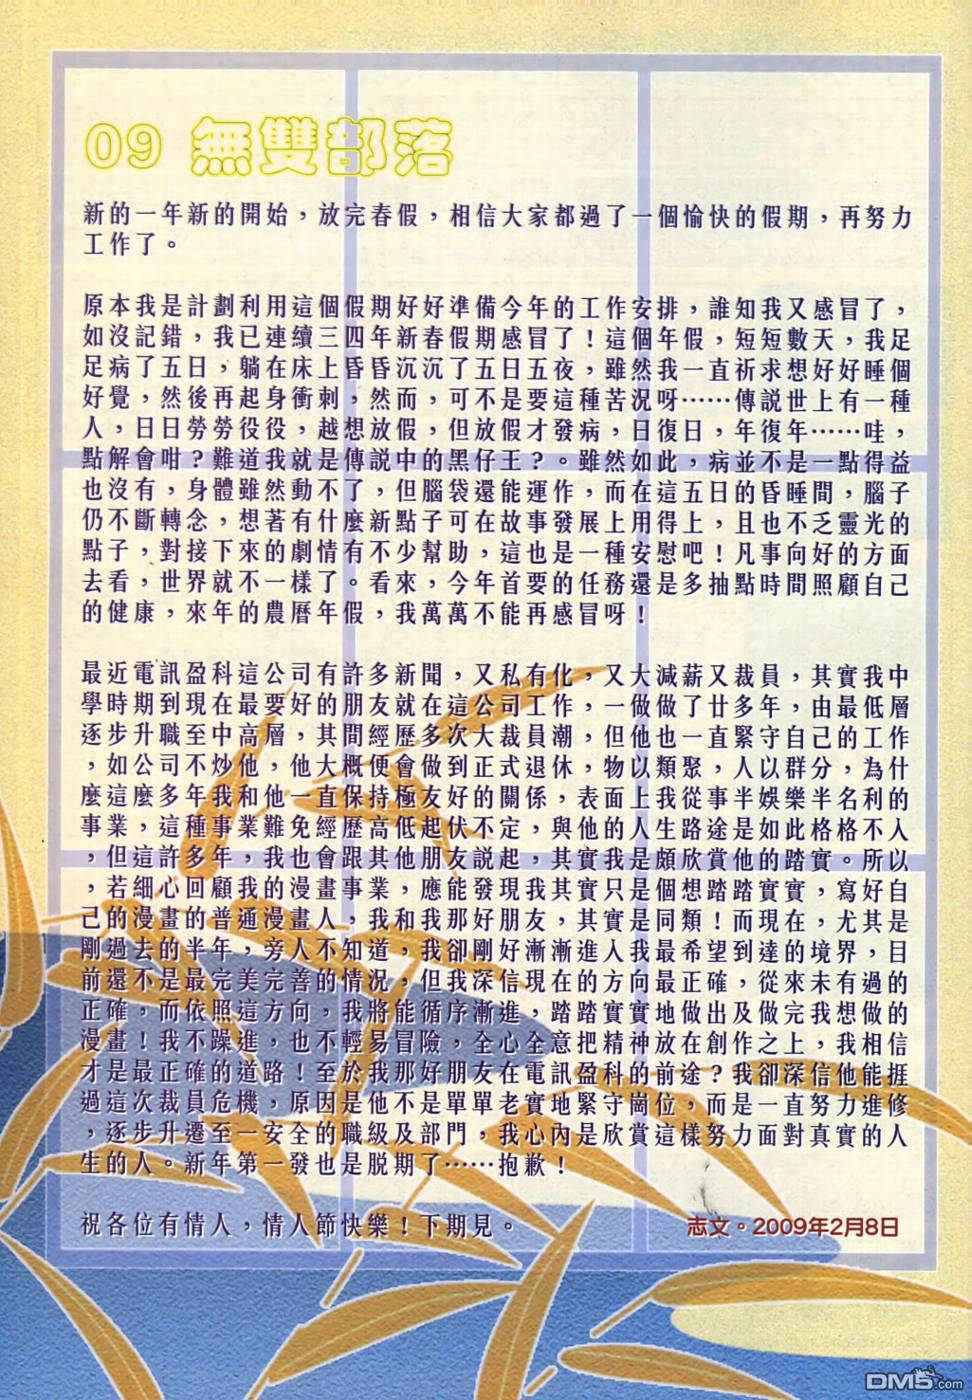 09 無雙部落
新的一年新的開始，放完春假，相信大家都過了一個愉快的假期，再努力
工作了。
原本我是計劃利用這個假期好好準備今年的工作安排，誰知我又感冒了，
如沒記錯，我已連續三四年新春假期感冒了！這個年假，短短數天，我足
足病了五日，躺在床上昏昏沉沉了五日五夜，雖然我一直祈求想好好睡個
好覺，然後再起身衝刺，然而，可不是要這種苦況呀……傳說世上有一種
人，日日勞勞役役，越想放假，但放假才發病，日復日，年復年……哇，
點解會咁？難道我就是傳說中的黑仔王？。雖然如此，病並不是一點得益
也沒有，身體雖然動不了，但腦袋還能運作，而在這五日的昏睡間，腦子
仍不斷轉念，想著有什麼新點子可在故事發展上用得上，且也不乏靈光的
點子，對接下來的劇情有不少幫助，這也是一種安慰吧！凡事向好的方面
去看，世界就不一樣了。看來，今年首要的任務還是多抽點時間照顧自己
的健康，來年的農曆年假，我萬萬不能再感冒呀！
最近電訊盈科這公司有許多新聞，又私有化，又大減薪又裁員，其實我中
學時期到現在最要好的朋友就在這公司工作，一做做了廿多年，由最低層
逐步升職至中高層，其間經歷多次大裁員潮，但他也一直緊守自己的工作
，如公司不炒他，他大概便會做到正式退休，物以類聚，人以群分，為什
麼這麼多年我和他一直保持極友好的關係，表面上我從事半娛樂半名利的
事業，這種事業難免經歷高低起伏不定，與他的人生路途是如此格格不入
，但這許多年，我也會跟其他朋友說起，其實我是頗欣賞他的踏實。所以
，若細心回顧我的漫畫事業，應能發現我其實只是個想踏踏實實，寫好自
己的漫畫的普通漫畫人，我和我那好朋友，其實是同類！而現在，尤其是
剛過去的半年，旁人不知道，我卻剛好漸漸進入我最希望到達的境界，目
前還不是最完美完善的情況，但我深信現在的方向最正確，從來未有過的
正確，而依照這方向，我將能循序漸進，踏踏實實地做出及做完我想做的
漫畫！我不躁進，也不輕易冒險，全心全意把精神放在創作之上，我相信
才是最正確的道路！至於我那好朋友在電訊盈科的前途？我卻深信他能捱
過這次裁員危機，原因是他不是單單老實地緊守崗位，而是一直努力進修
，逐步升遷至一安全的職級及部門，我心內是欣賞這樣努力面對真實的人
生的人。新年第一發也是脫期了……抱歉！
祝各位有情人，情人節快樂！下期見。
志文。2009年2月8日
DM5.com